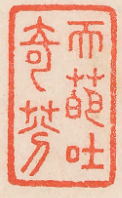 天葩吐
奇芬